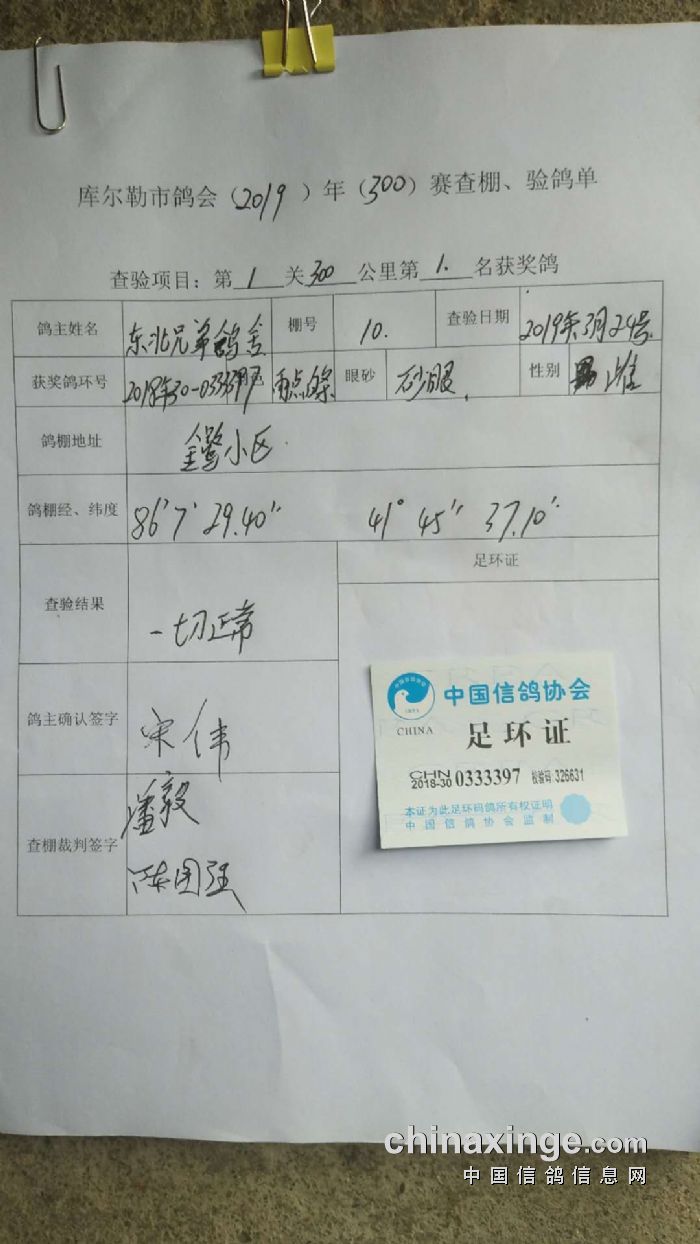 库尔勒市鸽会（2019）年（300）赛查棚、验鸽单
查验项目：第 1 关 300 公里第 1. 名获奖鸽
鸽主姓名 东北兄弟鸽舍 棚号 10. 查验日期 2019年3月24号
获奖鸽环号 2018年30-0333397 眼砂 砂眼. 性别 雄
鸽棚地址 小区.
鸽棚经、纬度 86°7'29.40" 41° 45" 37.10'
查验结果 一切正常
足环证
鸽主确认签字 宋伟
查棚裁判签字 潘毅
陈国强
中国信鸽协会
CHINA
足环证
CHN
2018-30 0333397 校验码:326631
本证为此足环码鸽所有权证明
中国信鸽协会监制
chinaxinge.com
中国信鸽信息网